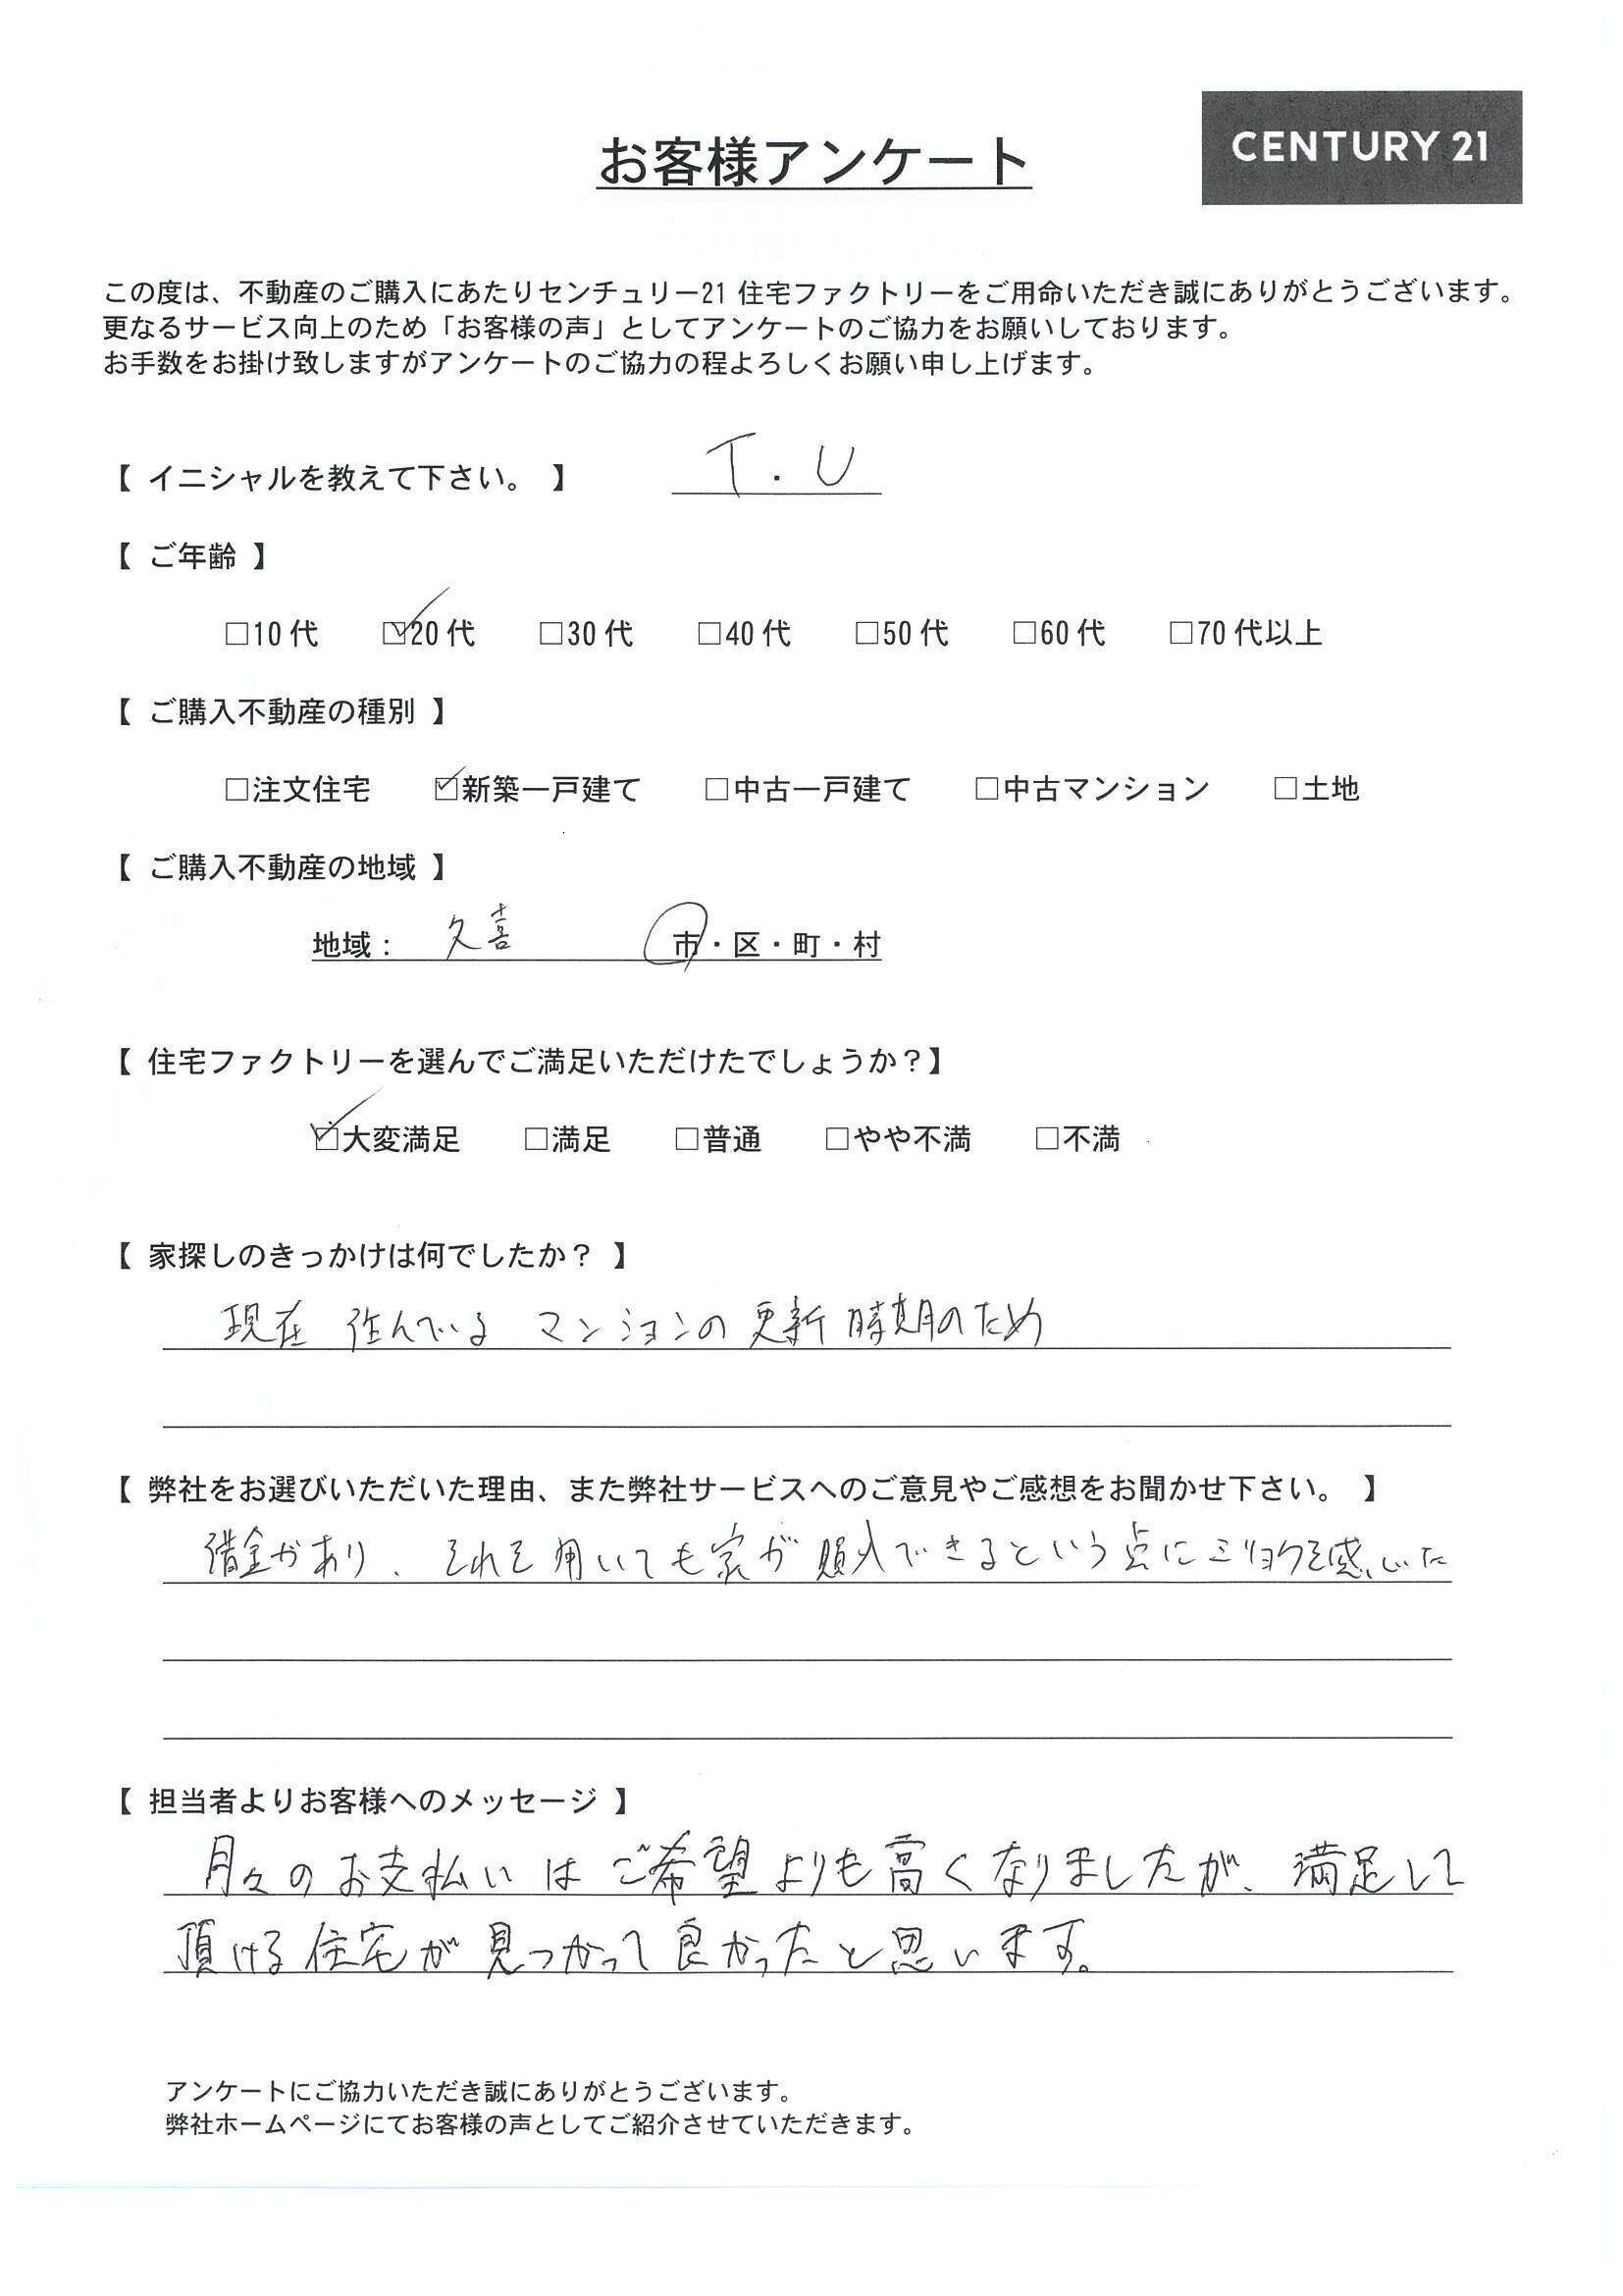 お客様アンケート
CENTURY 21
この度は、不動産のご購入にあたりセンチュリー21 住宅ファクトリーをご用命いただき誠にありがとうございます。
更なるサービス向上のため「お客様の声」としてアンケートのご協力をお願いしております。
お手数をお掛け致しますがアンケートのご協力の程よろしくお願い申し上げます。
【 イニシャルを教えて下さい。 】 T.U
【 ご年齢 】
□10代 ☑20代 □30代 □40代 □50代 □60代 □70代以上
【 ご購入不動産の種別 】
□注文住宅 ☑新築一戸建て □中古一戸建て □中古マンション □土地
【 ご購入不動産の地域 】
地域： 久喜 市・区・町・村
【 住宅ファクトリーを選んでご満足いただけたでしょうか？】
☑大変満足 □満足 □普通 □やや不満 □不満
【 家探しのきっかけは何でしたか？ 】
現在 住んでいる マンションの 更新 時期のため
【 弊社をお選びいただいた理由、また弊社サービスへのご意見やご感想をお聞かせ下さい。 】
借金があり、それを用いても家が購入できるという点にミリョクを感じた
【 担当者よりお客様へのメッセージ 】
月々のお支払いはご希望よりも高くなりましたが、満足して
頂ける住宅が見つかって良かったと思います。
アンケートにご協力いただき誠にありがとうございます。
弊社ホームページにてお客様の声としてご紹介させていただきます。